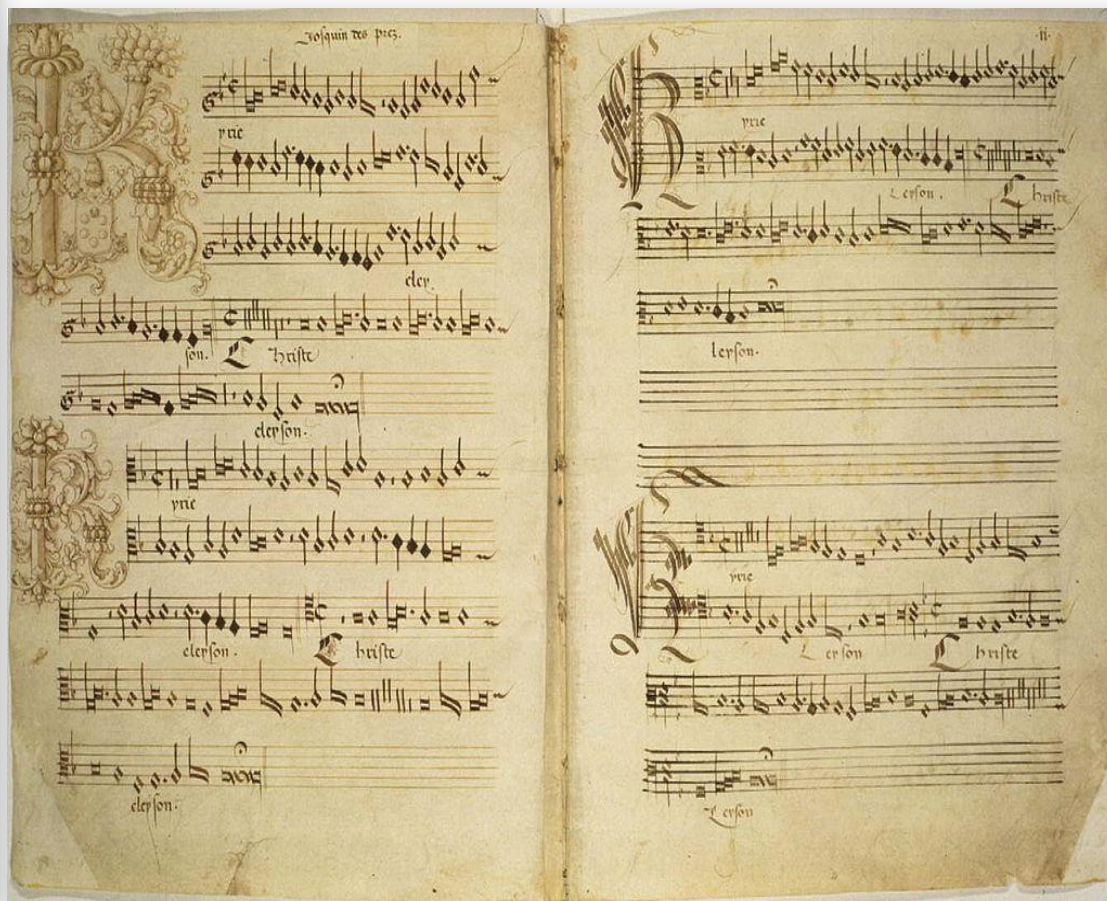 Josquin des prez.
yrie
eley
son. Christe
eleyson.
yrie
eleyson. Christe
eleyson.
.ii.
Kyrie
Leyson. Christe
leyson.
Kyrie
Leyson Christe
Leyson